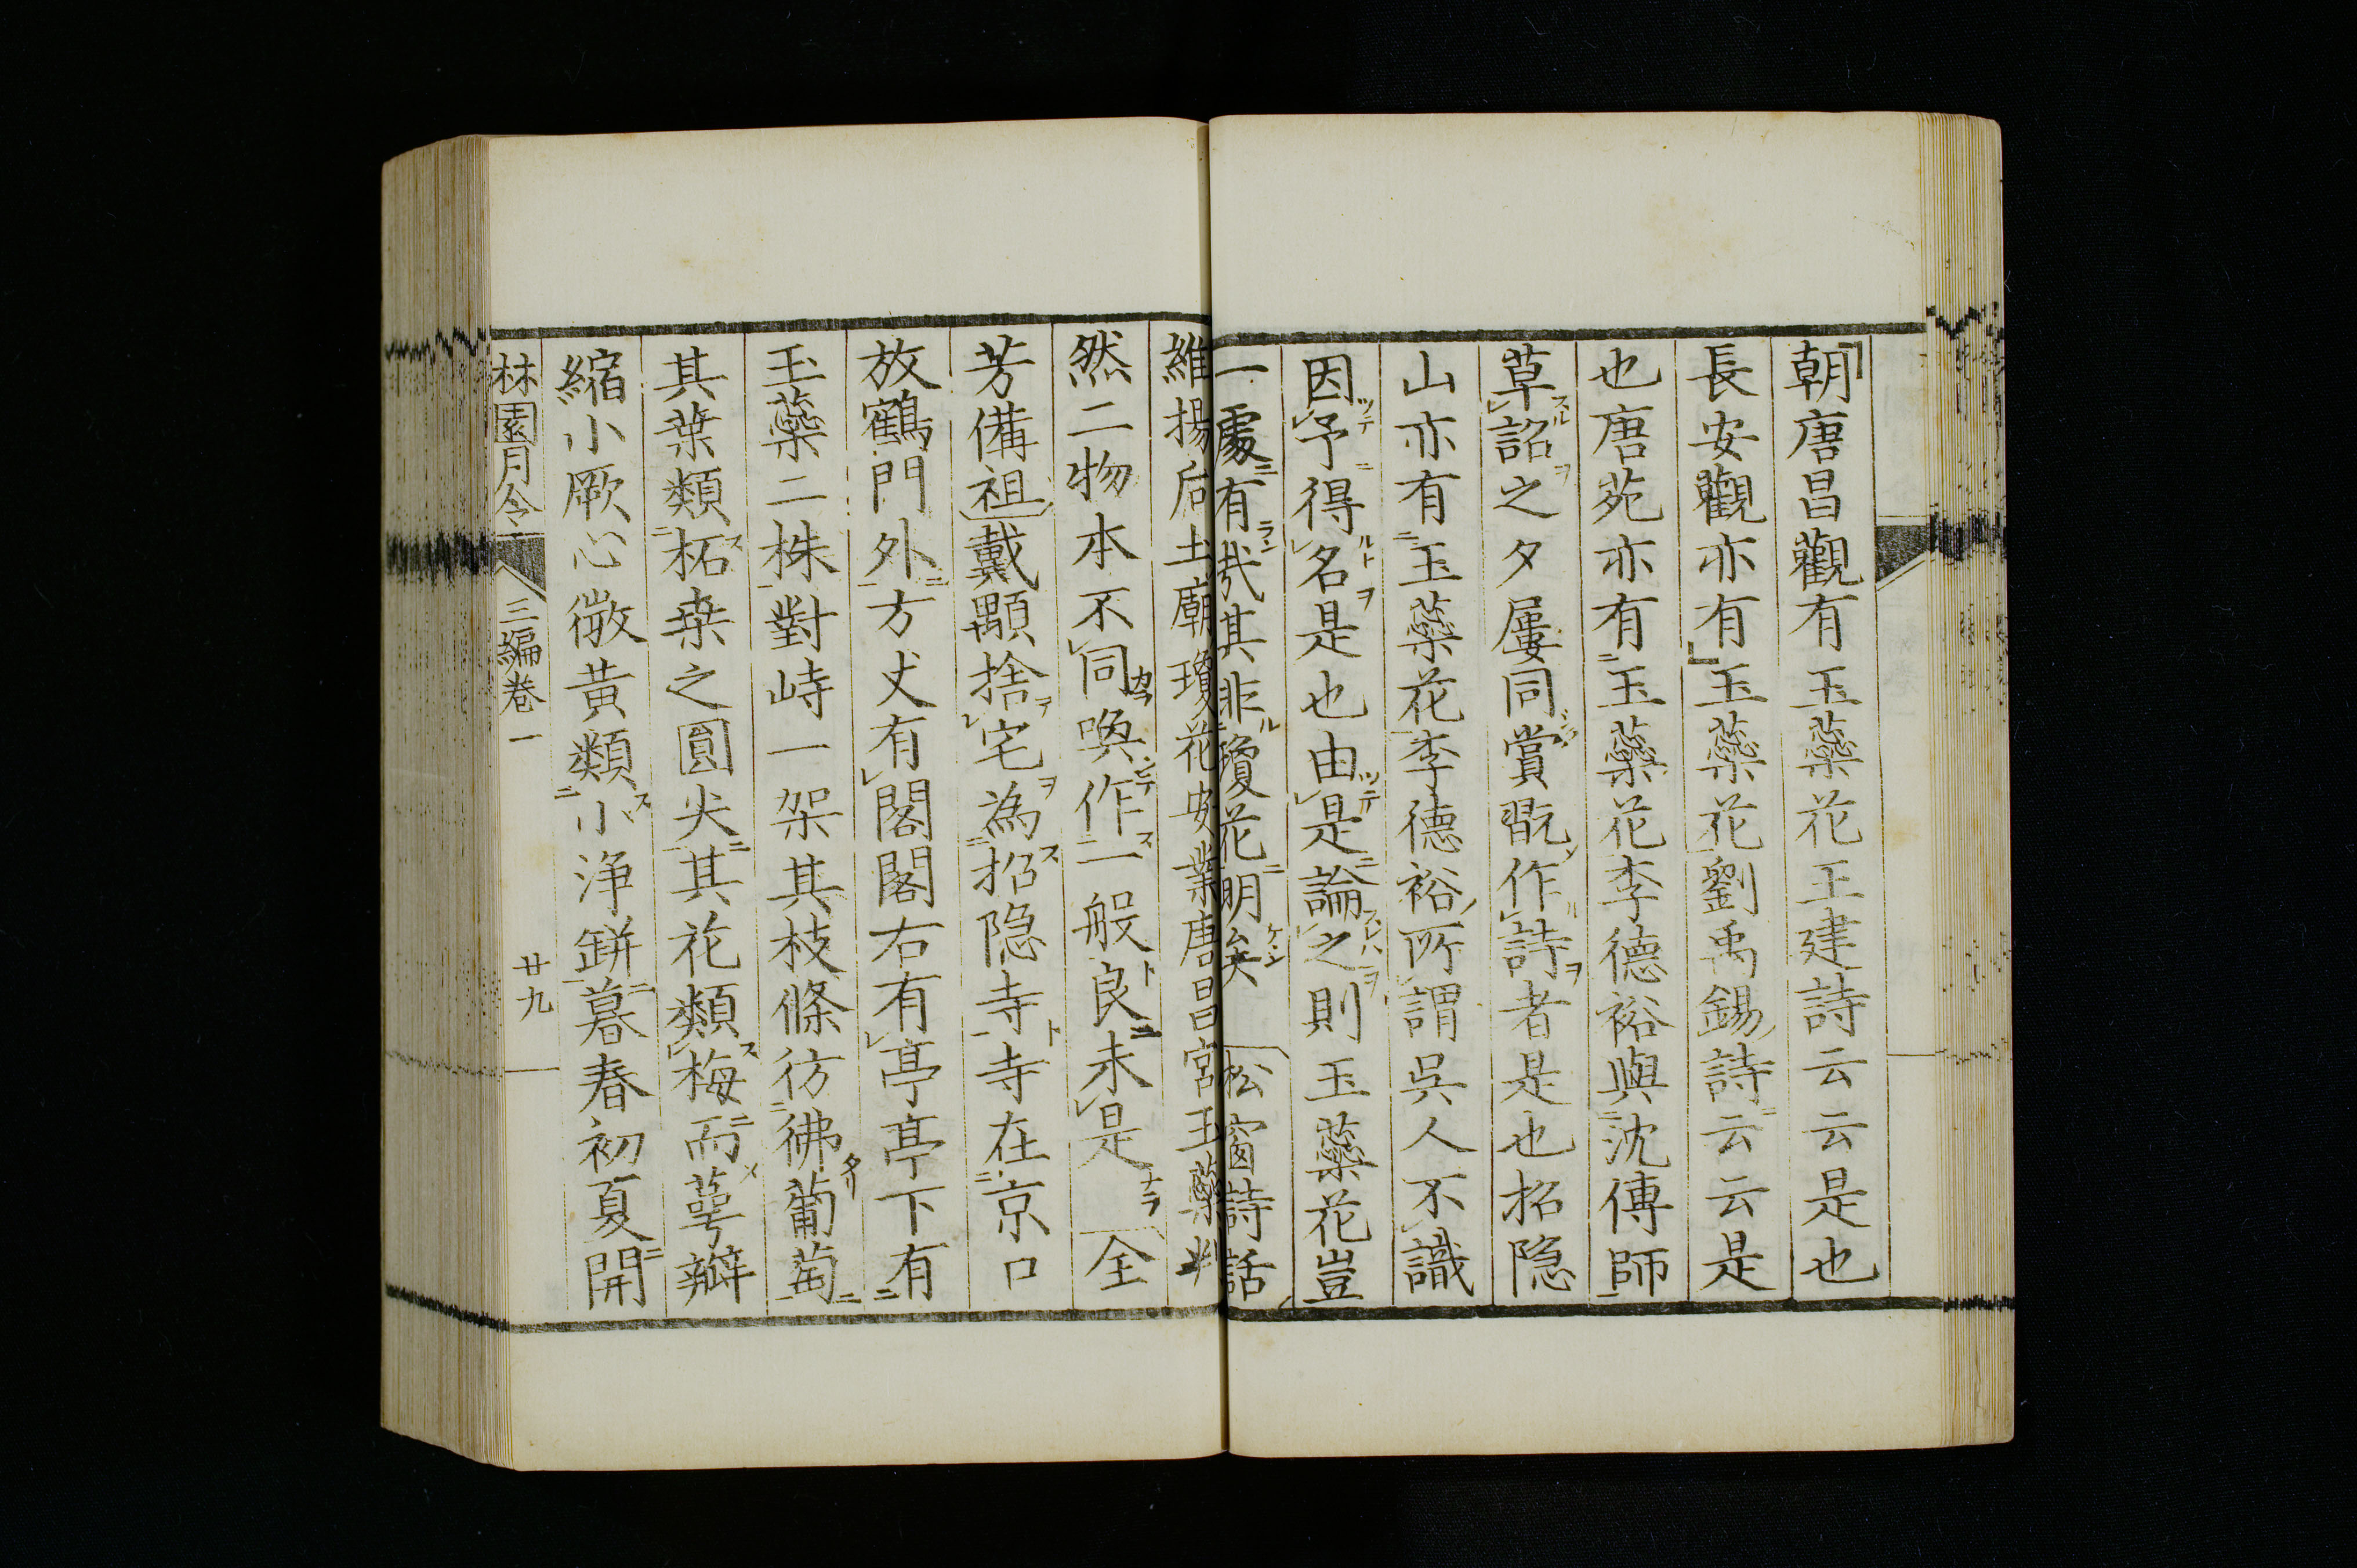 朝唐昌觀有玉蘂花王建詩云云是也
長安觀亦有玉蘂花劉禹錫詩云云是
也唐苑亦有玉蘂花李德裕與沈傳師
草詔之夕屢同賞翫作詩者是也招隐
山亦有玉蘂花李德裕所謂吳人不識
因予得名是也由是論之則玉蘂花豈
一處有哉其非瓊花明矣 松窗詩話
維揚后土廟瓊花安業唐昌宮玉蘂判
然二物本不同喚作一般良未是 全
芳備祖戴顒捨宅為招隐寺寺在京口
放鶴門外方丈有閣閣右有亭亭下有
玉蘂二株對峙一架其枝條彷彿葡萄
其葉類柘桒之圓尖其花類梅而萼瓣
縮小厥心微黃類小浄缾暮春初夏開
林園月令 三編卷一 廿九